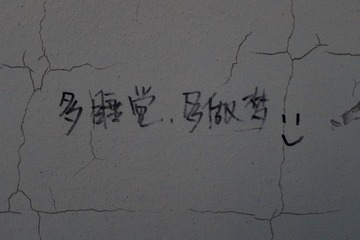 多睡觉.多做梦